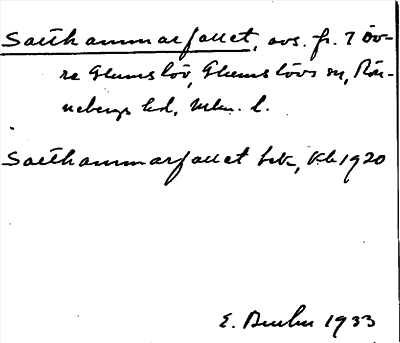 Salthammarfallet, avs. fr. 7 Öv-
re Glumslöv, Glumslövs sn, Rön-
nebergs hd, Mlm. l.
Salthammarfallet lht, Kb 1920
E. 1933